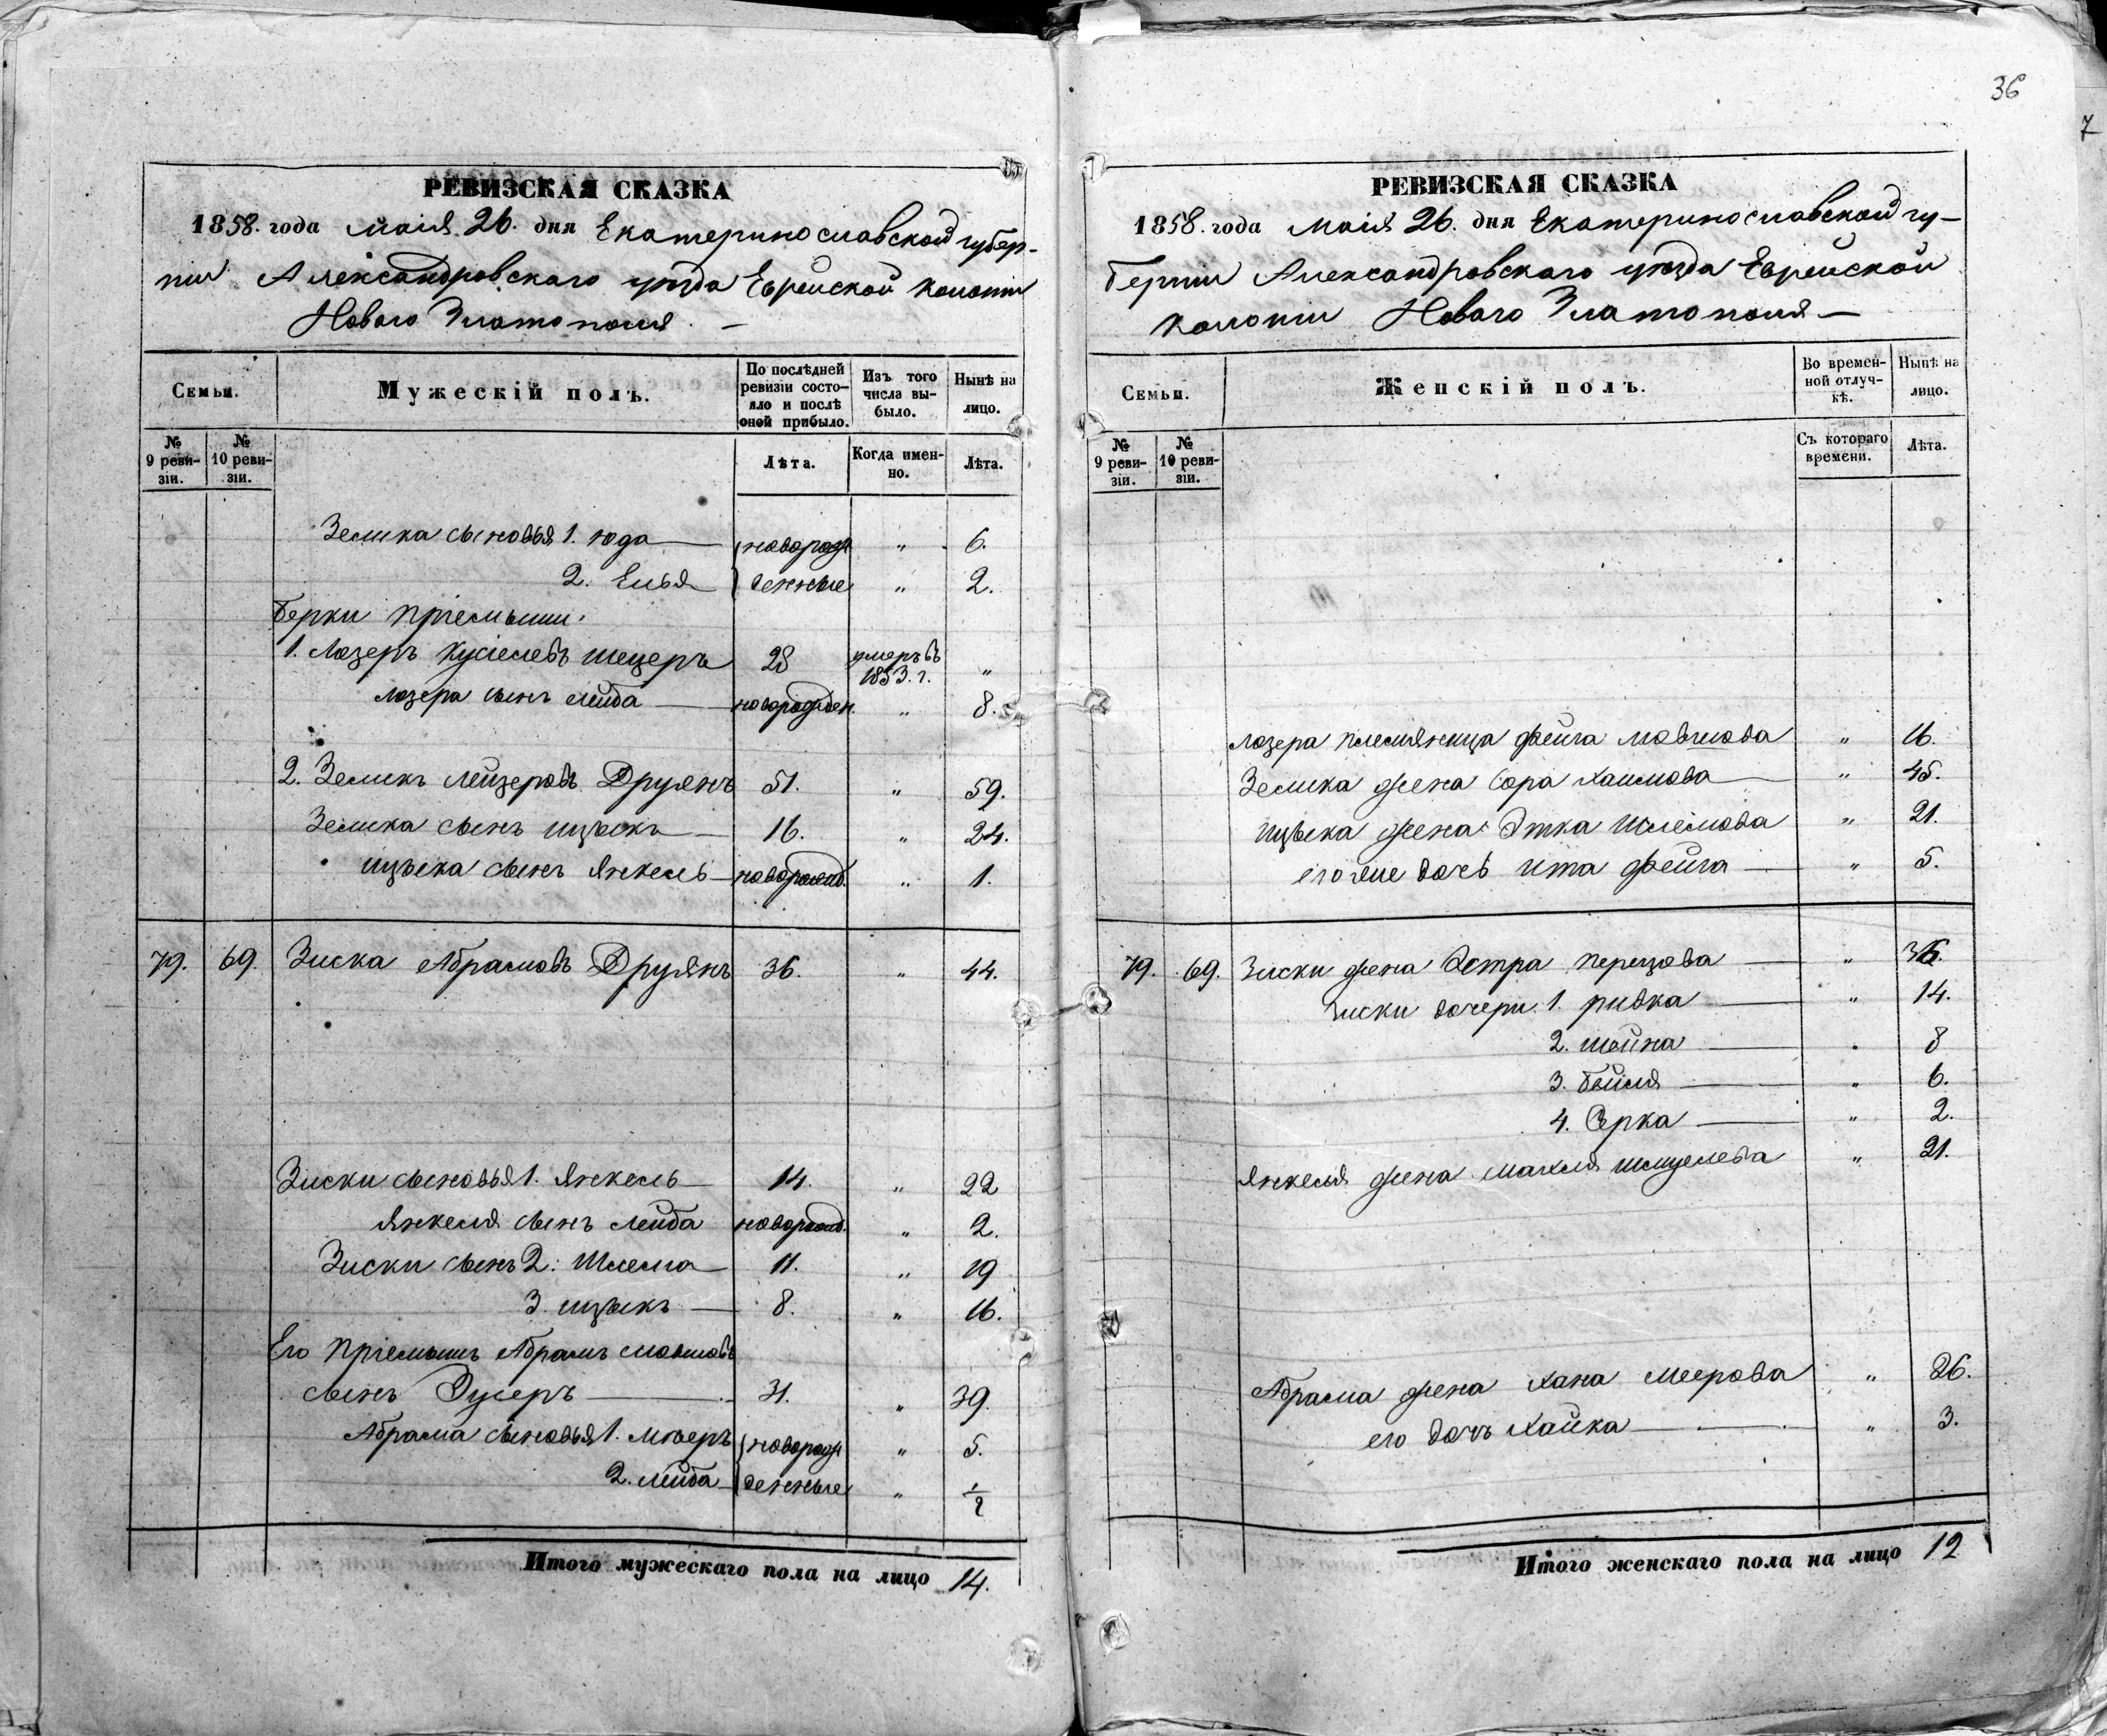 36
7
РЕВИЗСКАЯ СКАЗКА
1858. года маія 26. дня Екатеринославской губер-
ніи Александровскаго уѣзда Еврейской колоніи
Новаго Златополя. —
Семьи. Мужескій полъ. По послѣдней ревизіи состояло и послѣ оной прибыло. Изъ того числа выбыло. Нынѣ на лицо.
№ 9 ревизіи. № 10 ревизіи. Лѣта. Когда именно. Лѣта.
Зелика сыновья 1. юда новорож „ 6.
2. Елья денные „ 2.
Берки пріемыши:
1. Лозеръ Кусіелевъ 28 умеръ въ 1853. г. „
Лозера сынъ лейба новорожден. „ 8.
2. Зеликъ Лейзеровъ Друянъ 51. „ 59.
Зелика сынъ ицыкъ 16. „ 24.
ицыка сынъ Янкель новорожд. „ 1.
79. 69. Зиска Абрамовъ Друянъ 36. „ 44.
Зиски сыновья 1. Янкель 14. „ 22
Янкеля сынъ Лейба новорожд. „ 2.
Зиски сынъ 2. Шлема 11. „ 19
3. ицыкъ 8. „ 16.
Его пріемышъ Абрамъ Мовшовъ
сынъ 31. „ 39.
Абрама сыновья 1. Мееръ новорож „ 5.
2. лейба денные „ ½
Итого мужескаго пола на лицо 14.
РЕВИЗСКАЯ СКАЗКА
1858. года маія 26. дня Екатеринославской гу-
берніи Александровскаго уѣзда Еврейской
колоніи Новаго Златополя —
Семьи. Женскій полъ. Во временной отлучкѣ. Нынѣ на лицо.
№ 9 ревизіи. № 10 ревизіи. Съ котораго времени. Лѣта.
Лозера племяница Фейга Мовшова „ 16.
Зелика жена Сора Хаимова „ 45.
ицыка жена Этка Шлемова „ 21.
его же дочь ита Фейга „ 5.
79. 69. Зиски жена Эстра Перецова „ 36.
Зиски дочери 1. ривка „ 14.
2. шейна „ 8
3. бейля „ 6.
4. Сърка „ 2.
Янкеля жена Махля „ 21.
Абрама жена Хана Меерова „ 26.
его дочь Хайка „ 3.
Итого женскаго пола на лицо 12